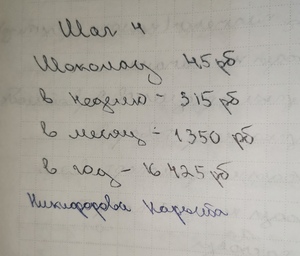 Шаг 4
Шоколад 45 рб
в неделю - 315 рб
в месяц - 1350 рб
в год - 16 425 рб
Никифорова